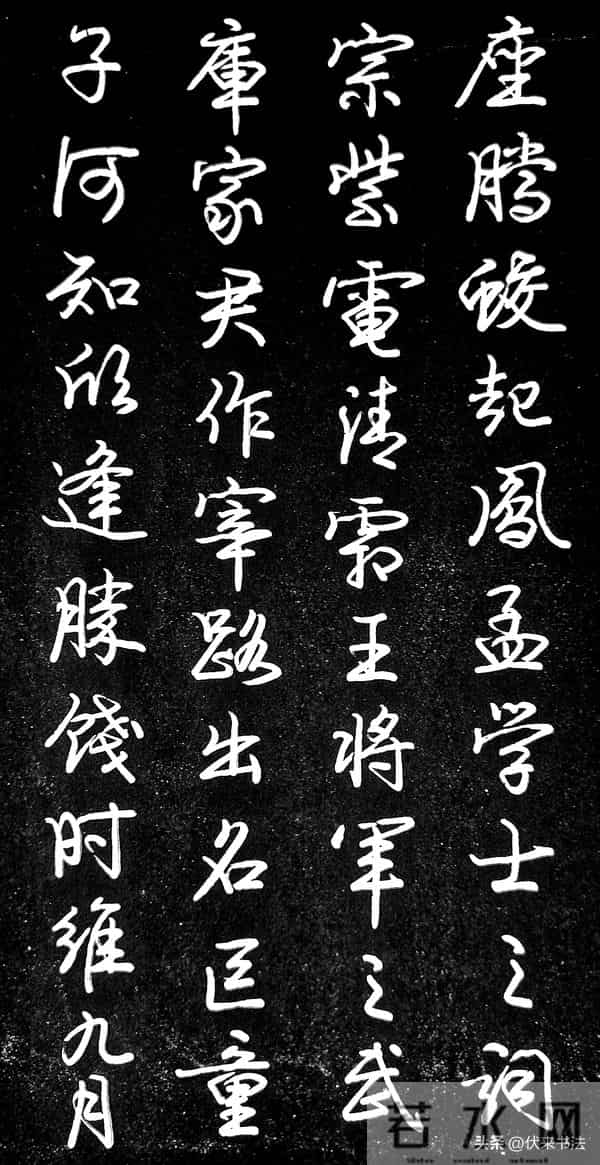 座騰蛟起鳳孟学士之詞
宗紫電清霜王将軍之武
庫家君作宰路出名区童
子何知躬逢勝餞时維九月
若水网
头条 @伏来书法